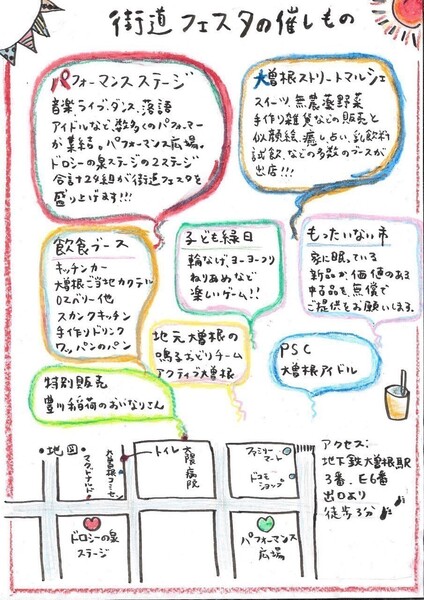 街道フェスタの催しもの
パフォーマンスステージ
音楽ライブ、ダンス、落語
アイドルなど、数多くのパフォーマー
が集結。パフォーマンス広場。
ドロシーの泉ステージの2ステージ
合計29組が街道フェスタを
盛り上げます!!!
大曽根ストリートマルシェ
スイーツ、無農薬野菜
手作り雑貨などの販売と
似顔絵、癒し、占い、乳飲料
試飲、などの多数のブースが
出店!!!
飲食ブース
キッチンカー
大曽根ご当地カクテル
スカンクキッチン
手作りドリンク
ワッパンのパン
子ども縁日
輪なげ、ヨーヨーつり
ねりあめなど
楽しいゲーム!!
もったいない市
家に眠っている
新品か、価値のある
中古品を無償で
ご提供をお願いします。
地元大曽根の
鳴るおどりチーム
アクティブ大曽根
PSC
大曽根アイドル
特別販売
豊川稲荷のおいなりさん
・地図・
マクドナルド
トイレ
大隈病院
ファミリーマート
ドコモショップ
ドロシーの泉
ステージ
パフォーマンス
広場
アクセス:
地下鉄大曽根駅
3番、E6番
出口より
徒歩3分